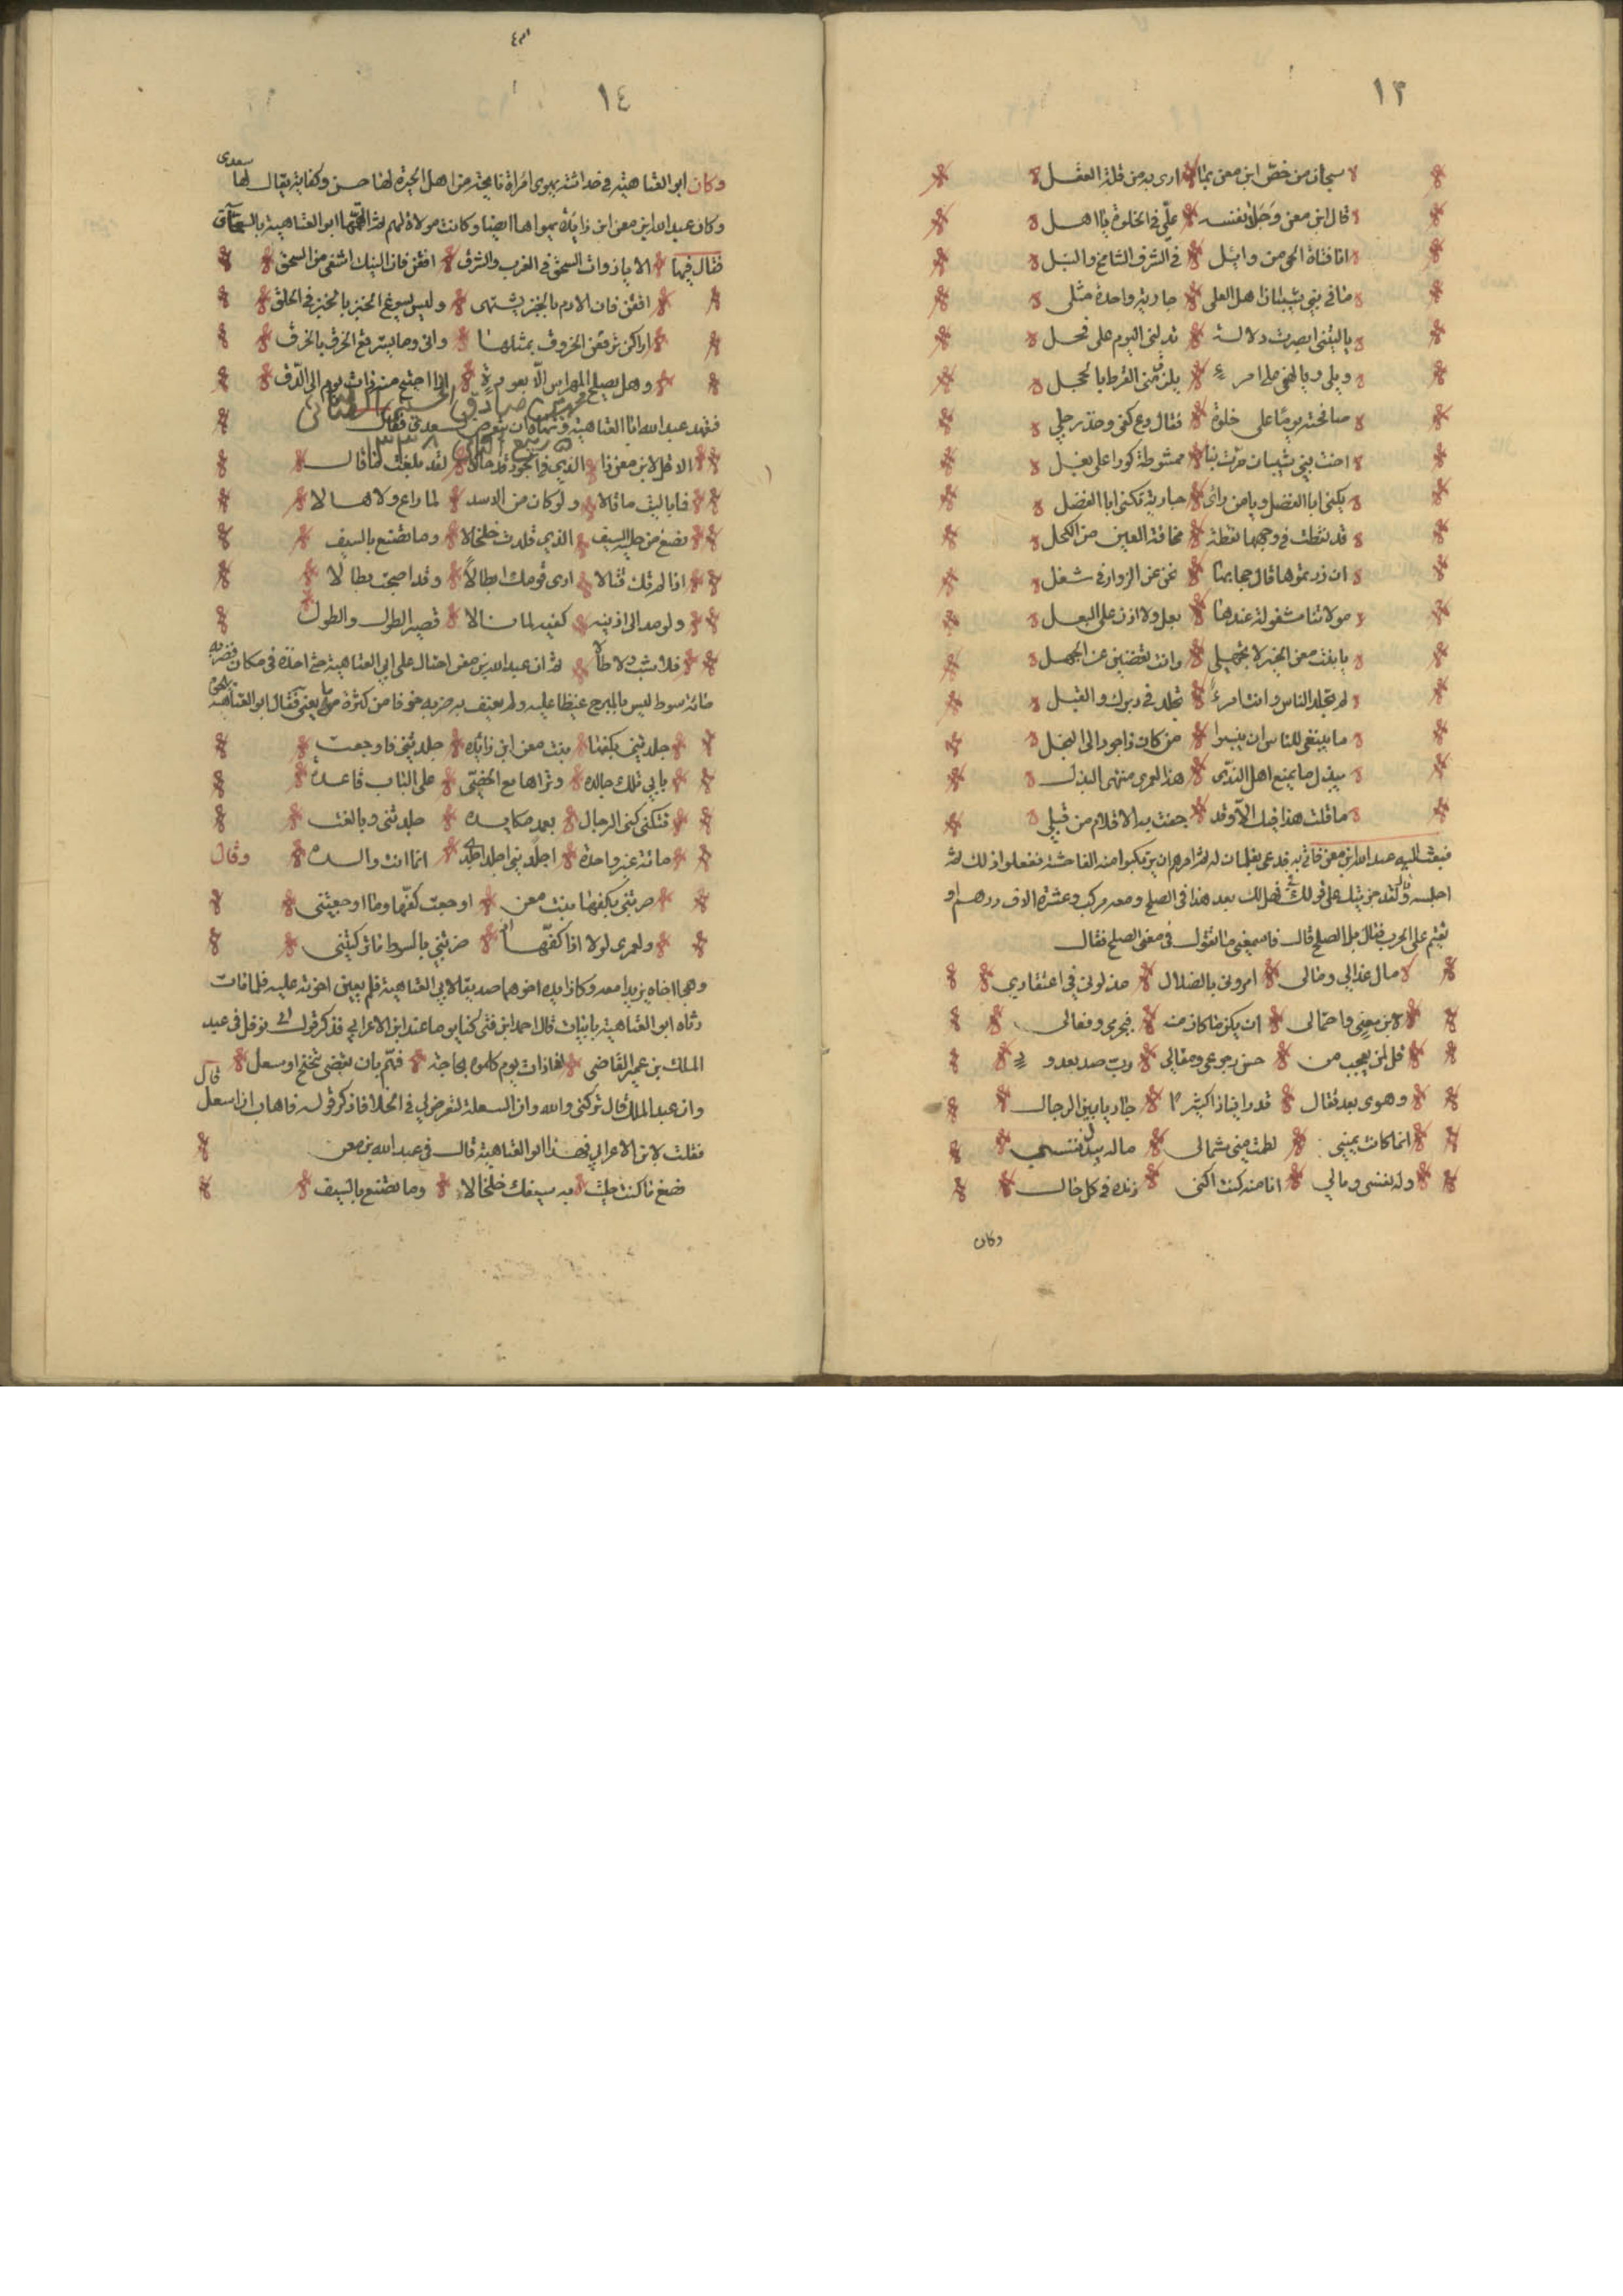 ١٣
سبحان من خص ابن معن بما ارى به من قلة العقل
قال ابن معن وجلا نفسه على من الخلوة يا اهل
انا فتاة الحي من وائل في الشرف الشامخ والنبل
ما في بني شيبان اهل العلى جارية واحدة مثلي
يا ليتني ابصرت دلالة تدلني اليوم على فحل
ويلي ويا لهفي على امرء يلزق مني القرط بالحجل
صافحته يوما على خلوة فقال دع كفي وخذ رجلي
اخت بني شيبان مرت بنا ممشوطة كورا على بغل
يكنى ابا الفضل ويا من راى جارية تكنى ابا الفضل
قد نقطت في وجهها نقطة مخافة العين من الكحل
ان زرتموها قال حجابها نحن عن الزوار في شغل
مولاتنا مشغولة عندها بعل ولا اذن على البعل
يا بنت معن الخير لا تجهلي واين تقضين عن الجهل
لم تجلد الناس وانت امرء تجلد في دبرك والقبل
ما ينبغي للناس ان ينسبوا من كان ذا جود الى البخل
يبذل ما يمنع اهل الندى هذا لعمري منتهى البذل
ما قلت هذا فيك الا وقد جفت به الاقلام من قبلي
فبعث اليه عبد الله بن معن فاتي به فدعى بغلمان له ثم امرهم ان يرتكبوا منه الفاحشة ففعلوا ذلك ثم
اجلسه وقال لقد جزيتك على قولك في فهل لك بعد هذا في الصلح ومعه مركب وعشرة الاف درهم او
تقيم على الحرب فقال بل الصلح قال فاسمعني ما تقول في معنى الصلح فقال
ما لعذالي ومالي امروني بالضلال عذلوني في اعتقادي
لابن معن واحتمالي ان يكن ما كان منه فبجرمي وفعالي
قل لمن يعجب من حسن رجوعي ومقالي رب صد بعد ود
وهوى بعد تقال قد راينا ذا كثيرا جاريا بين الرجال
انما كانت يميني لطمت مني شمالي ماله بل نفسي
وله نفسي ومالي انا منه كنت اكنى زنده في كل حال
وكان
١٤
وكان ابو العتاهية في حداثته يهوى امراة نايحة من اهل الحيرة لها حسن وكفاية يقال لها سعدى
وكان عبد الله بن معن ابن زائدة يهواها ايضا وكانت مولاة لهم ثم اتهمها ابو العتاهية بالسحاق
فقال فيها الا يا ذوات السحق في الغرب والشرق افقن فان النيك اشفى من السحق
افقن فان الادم بالخبز يشتهى وليس يسوغ الخبز بالخبز في الحلق
اراكن ترقعن الخروق بمثلها واي وما يسترقع الخرق بالخرق
وهل يصلح المهراس الا بعوده اذا احتيج منه ذات يوم الى الدق
فتهدد عبد الله ابا العتاهية ونهاه ان يتعرض سعدى فقال
الا قل لابن معن ذا الذي في الجود قد حالا لقد بلغت ما قال
فما باليت ما قالا ولو كان من الاسد لما راع ولا هالا
فصغ من حلية السيف الذي قلدت خلخالا وما تصنع بالسيف
اذا لم تك قتالا ارى قومك ابطالا وقد اصبحت بطالا
ولو مد الى اذنيه كفيه لما نالا قصير الطول والطول
فلا شب ولا طالا ثم ان عبد الله بن معن احتال على ابي العتاهية حتى اخذه في مكان فضربه
مائة سوط ليس بالمبرح غيظا عليه ولم يعنف به ضربه خوفا من كثرة من يعنى به فقال ابو العتاهية يهجوه
جلدتني بكفها بنت معن ابن زائده جلدتني فاوجعت
بابي تلك جالده وتراها مع الخصي على الباب قاعده
تتكنى كنى الرجال بعمد مكايده جلدتني وبالغت
مائة غير واحدة اجلديني اجلدي انما انت والده وقال
ضربتني بكفها بنت معن اوجعت كفها وما اوجعتني
ولعمري لولا اذا كفها ضربتني بالسوط ما تركتني
وهجا اخاه يزيدا معه وكان زايدة اخوهما صديقا لابي العتاهية فلم يعين اخوته عليه فلما مات
رثاه ابو العتاهية بابيات قال احمد ابن فنن كنا يوما عند ابن الاعرابي فذكر قول ابي نوفل في عبد
الملك بن عمير القاضي اذا ذات يوم كلموه بحاجة فهم بان يقضي تنحنح او سعل
وان عبد الملك قال تركني والله وان السعلة لتعرض لي في الخلا فاذكر قوله فاهاب ان اسعل قال
فقلت لابن الاعرابي فهذا ابو العتاهية قال في عبد الله بن معن
فصغ ما كنت حليت به سيفك خلخالا وما تصنع بالسيف